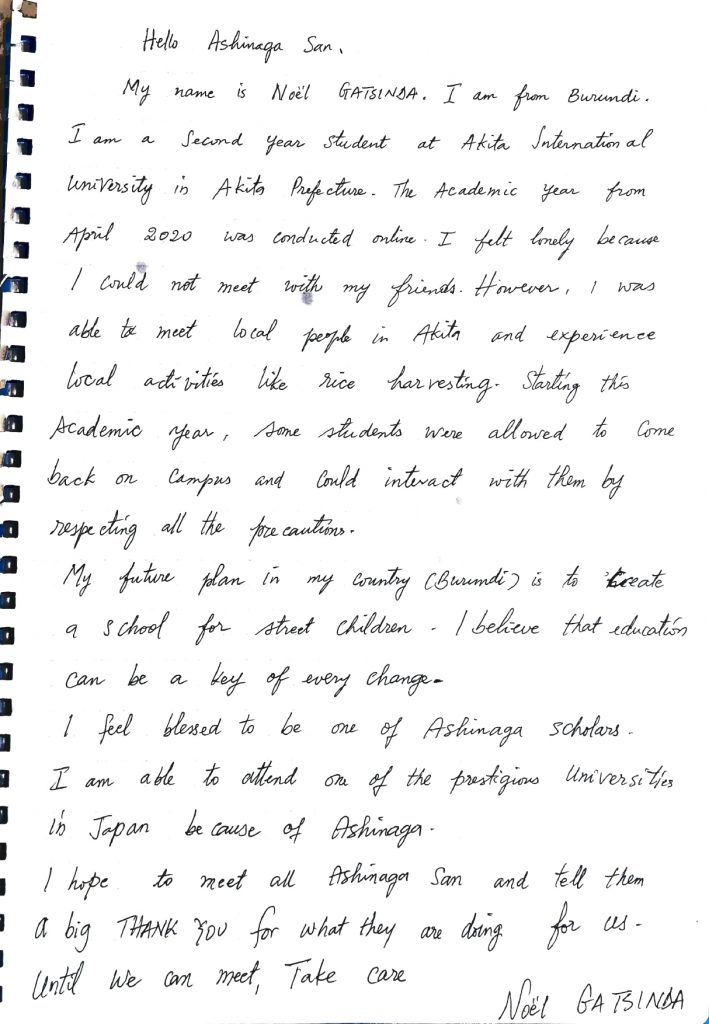 Hello Ashinaga San,
My name is Noël GATSINDA. I am from Burundi.
I am a Second year student at Akita International
University in Akita Prefecture. The Academic year from
April 2020 was conducted online. I felt lonely because
I could not meet with my friends. However, I was
able to meet local people in Akita and experience
local activities like rice harvesting. Starting this
Academic year, some students were allowed to come
back on campus and could interact with them by
respecting all the precautions.
My future plan in my country (Burundi) is to create
a school for street children. I believe that education
can be a key of every change.
I feel blessed to be one of Ashinaga scholars.
I am able to attend one of the prestigious Universities
in Japan because of Ashinaga.
I hope to meet all Ashinaga San and tell them
a big THANK YOU for what they are doing for us.
Until we can meet, Take care
Noël GATSINDA